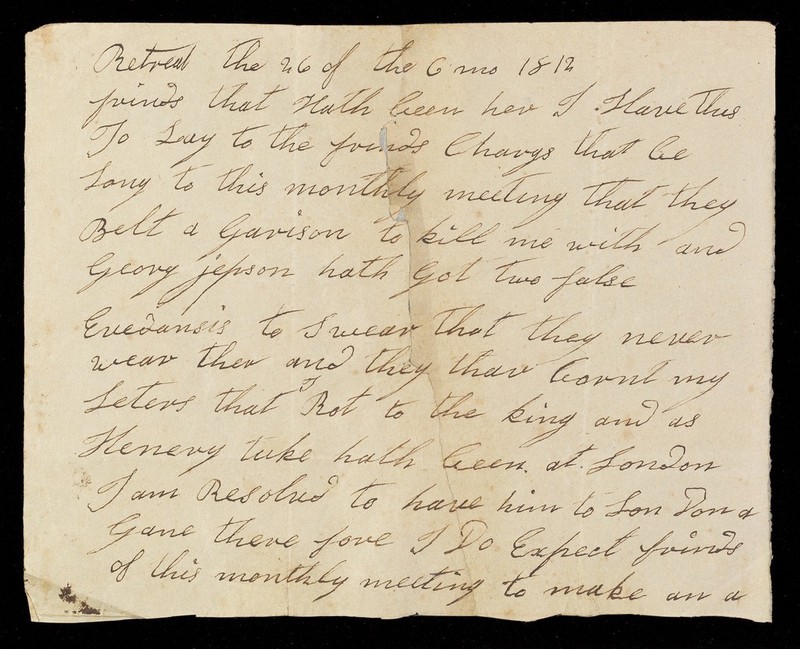 Retreat the 26 of the 6 mo 1812
frinds that Hath been her I Have this
To Lay to the frinds Chargs that be
Long to this monthly meeting that they
Belt a Garison to kill me with and
Georg jepson hath Got two false
Evedansis to Swear that they never
wear ther and they thar bornt my
Leters that I Rot to the king and as
Henery tuke hath been at London
I am Resolvd to have him to Lon don a
Gane there fore I Do Expect frinds
of this monthly meeting to make an a